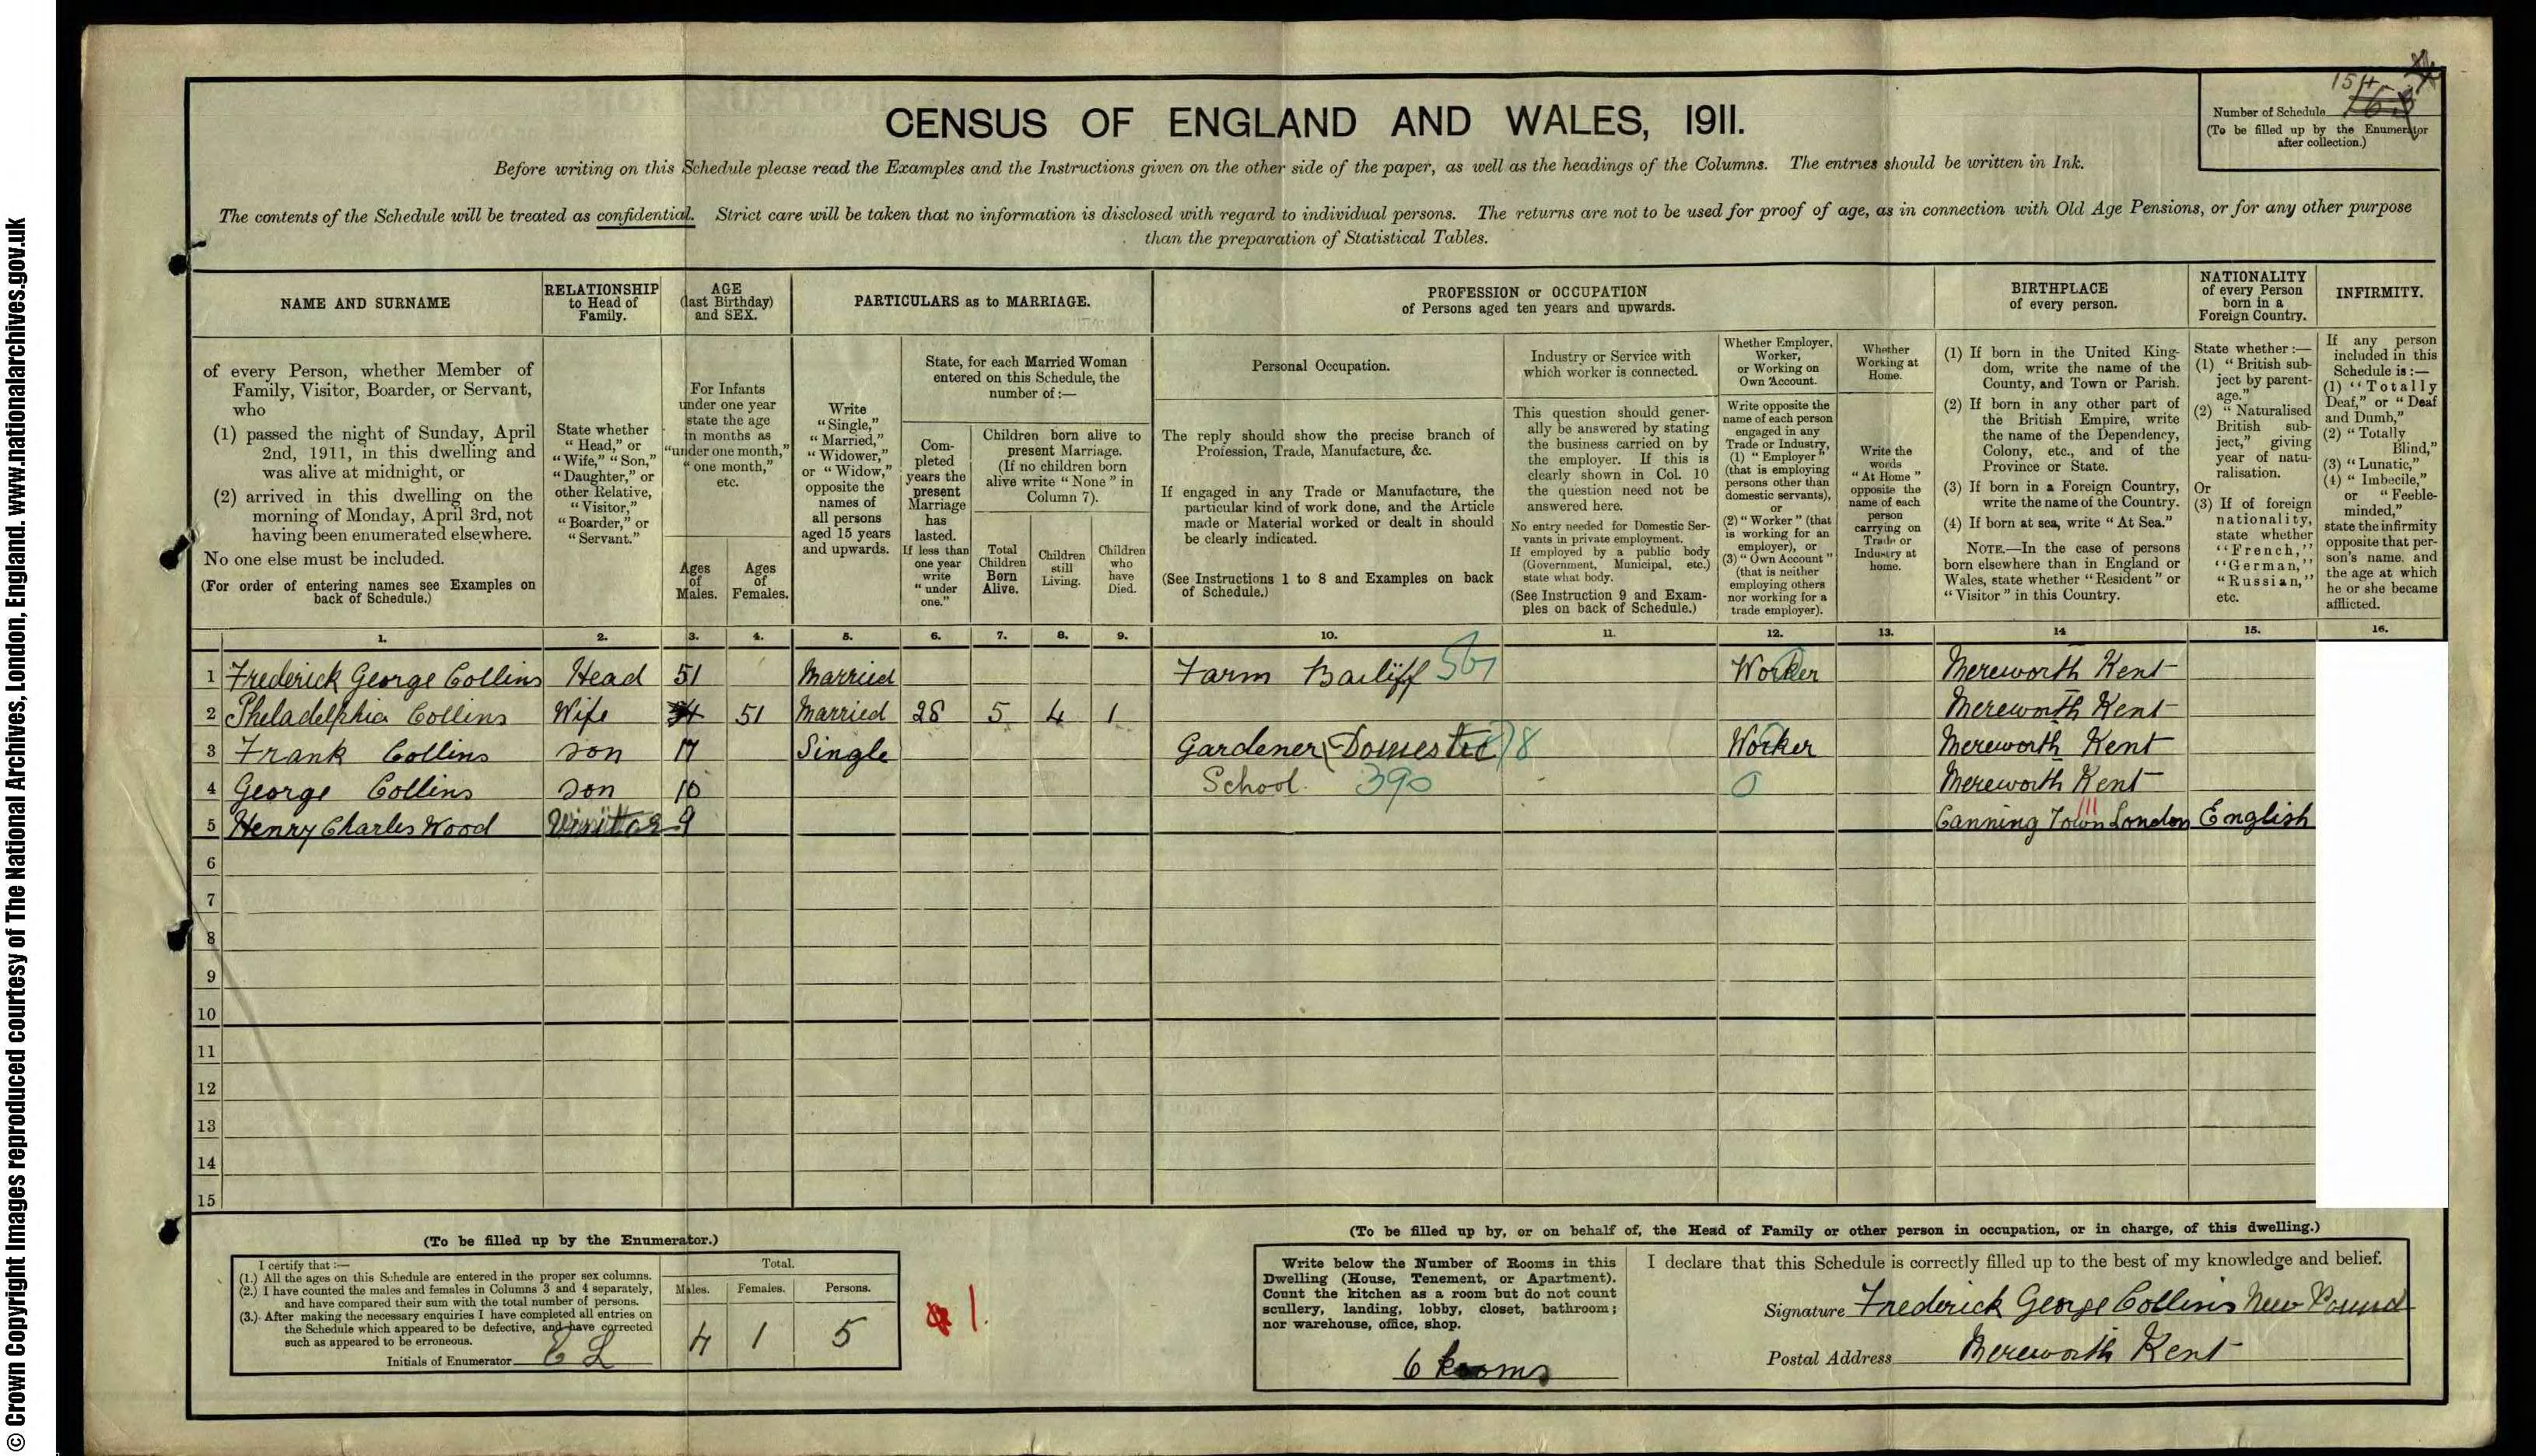 © Crown Copyright Images reproduced courtesy of The National Archives, London, England. www.nationalarchives.gov.uk
CENSUS OF ENGLAND AND WALES, 1911.
154
Number of Schedule 163
(To be filled up by the Enumerator
after collection.)
Before writing on this Schedule please read the Examples and the Instructions given on the other side of the paper, as well as the headings of the Columns. The entries should be written in Ink.
The contents of the Schedule will be treated as confidential. Strict care will be taken that no information is disclosed with regard to individual persons. The returns are not to be used for proof of age, as in connection with Old Age Pensions, or for any other purpose
than the preparation of Statistical Tables.
NAME AND SURNAME
of every Person, whether Member of
Family, Visitor, Boarder, or Servant,
who
(1) passed the night of Sunday, April
2nd, 1911, in this dwelling and
was alive at midnight, or
(2) arrived in this dwelling on the
morning of Monday, April 3rd, not
having been enumerated elsewhere.
No one else must be included.
(For order of entering names see Examples on
back of Schedule.)
RELATIONSHIP
to Head of
Family.
State whether
"Head," or
"Wife," "Son,"
"Daughter," or
other Relative,
"Visitor,"
"Boarder," or
"Servant."
AGE
(last Birthday)
and SEX.
For Infants
under one year
state the age
in months as
"under one month,"
"one month,"
etc.
Ages
of
Males.
Ages
of
Females.
PARTICULARS as to MARRIAGE.
Write
"Single,"
"Married,"
"Widower,"
or "Widow,"
opposite the
names of
all persons
aged 15 years
and upwards.
State, for each Married Woman
entered on this Schedule, the
number of :—
Com-
pleted
years the
present
Marriage
has
lasted.
If less than
one year
write
"under
one."
Children born alive to
present Marriage.
(If no children born
alive write "None" in
Column 7).
Total
Children
Born
Alive.
Children
still
Living.
Children
who
have
Died.
PROFESSION or OCCUPATION
of Persons aged ten years and upwards.
Personal Occupation.
The reply should show the precise branch of
Profession, Trade, Manufacture, &c.
If engaged in any Trade or Manufacture, the
particular kind of work done, and the Article
made or Material worked or dealt in should
be clearly indicated.
(See Instructions 1 to 8 and Examples on back
of Schedule.)
Industry or Service with
which worker is connected.
This question should gener-
ally be answered by stating
the business carried on by
the employer. If this is
clearly shown in Col. 10
the question need not be
answered here.
No entry needed for Domestic Ser-
vants in private employment.
If employed by a public body
(Government, Municipal, etc.)
state what body.
(See Instruction 9 and Exam-
ples on back of Schedule.)
Whether Employer,
Worker,
or Working on
Own Account.
Write opposite the
name of each person
engaged in any
Trade or Industry,
(1) "Employer"
(that is employing
persons other than
domestic servants),
or
(2) "Worker" (that
is working for an
employer), or
(3) "Own Account"
(that is neither
employing others
nor working for a
trade employer).
Whether
Working at
Home.
Write the
words
"At Home"
opposite the
name of each
person
carrying on
Trade or
Industry at
home.
BIRTHPLACE
of every person.
(1) If born in the United King-
dom, write the name of the
County, and Town or Parish.
(2) If born in any other part of
the British Empire, write
the name of the Dependency,
Colony, etc., and of the
Province or State.
(3) If born in a Foreign Country,
write the name of the Country.
(4) If born at sea, write "At Sea."
NOTE.—In the case of persons
born elsewhere than in England or
Wales, state whether "Resident" or
"Visitor" in this Country.
NATIONALITY
of every Person
born in a
Foreign Country.
State whether :—
(1) "British sub-
ject by parent-
age."
(2) "Naturalised
British sub-
ject," giving
year of natu-
ralisation.
Or
(3) If of foreign
nationality,
state whether
"French,"
"German,"
"Russian,"
etc.
INFIRMITY.
If any person
included in this
Schedule is :—
(1) "Totally
Deaf," or "Deaf
and Dumb,"
(2) "Totally
Blind,"
(3) "Lunatic,"
(4) "Imbecile,"
or "Feeble-
minded,"
state the infirmity
opposite that per-
son's name, and
the age at which
he or she became
afflicted.
1. 2. 3. 4. 5. 6. 7. 8. 9. 10. 11. 12. 13. 14 15. 16.
1 Frederick George Collins Head 51 Married Farm Bailiff 567 Worker Mereworth Kent
2 Pheladelphia Collins Wife 51 Married 28 5 4 1 Mereworth Kent
3 Frank Collins Son 17 Single Gardener (Domestic) 8 Worker Mereworth Kent
4 George Collins Son 10 School. 390 0 Mereworth Kent
5 Henry Charles Wood Visittor 9 Canning Town London English
111
6
7
8
9
10
11
12
13
14
15
(To be filled up by the Enumerator.)
I certify that :—
(1.) All the ages on this Schedule are entered in the proper sex columns.
(2.) I have counted the males and females in Columns 3 and 4 separately,
and have compared their sum with the total number of persons.
(3.) After making the necessary enquiries I have completed all entries on
the Schedule which appeared to be defective, and have corrected
such as appeared to be erroneous.
Initials of Enumerator E L
Total.
Males. Females. Persons.
4 1 5
1.
(To be filled up by, or on behalf of, the Head of Family or other person in occupation, or in charge, of this dwelling.)
Write below the Number of Rooms in this
Dwelling (House, Tenement, or Apartment).
Count the kitchen as a room but do not count
scullery, landing, lobby, closet, bathroom;
nor warehouse, office, shop.
6 Rooms
I declare that this Schedule is correctly filled up to the best of my knowledge and belief.
Signature Frederick George Collins New Pound
Postal Address Mereworth Kent